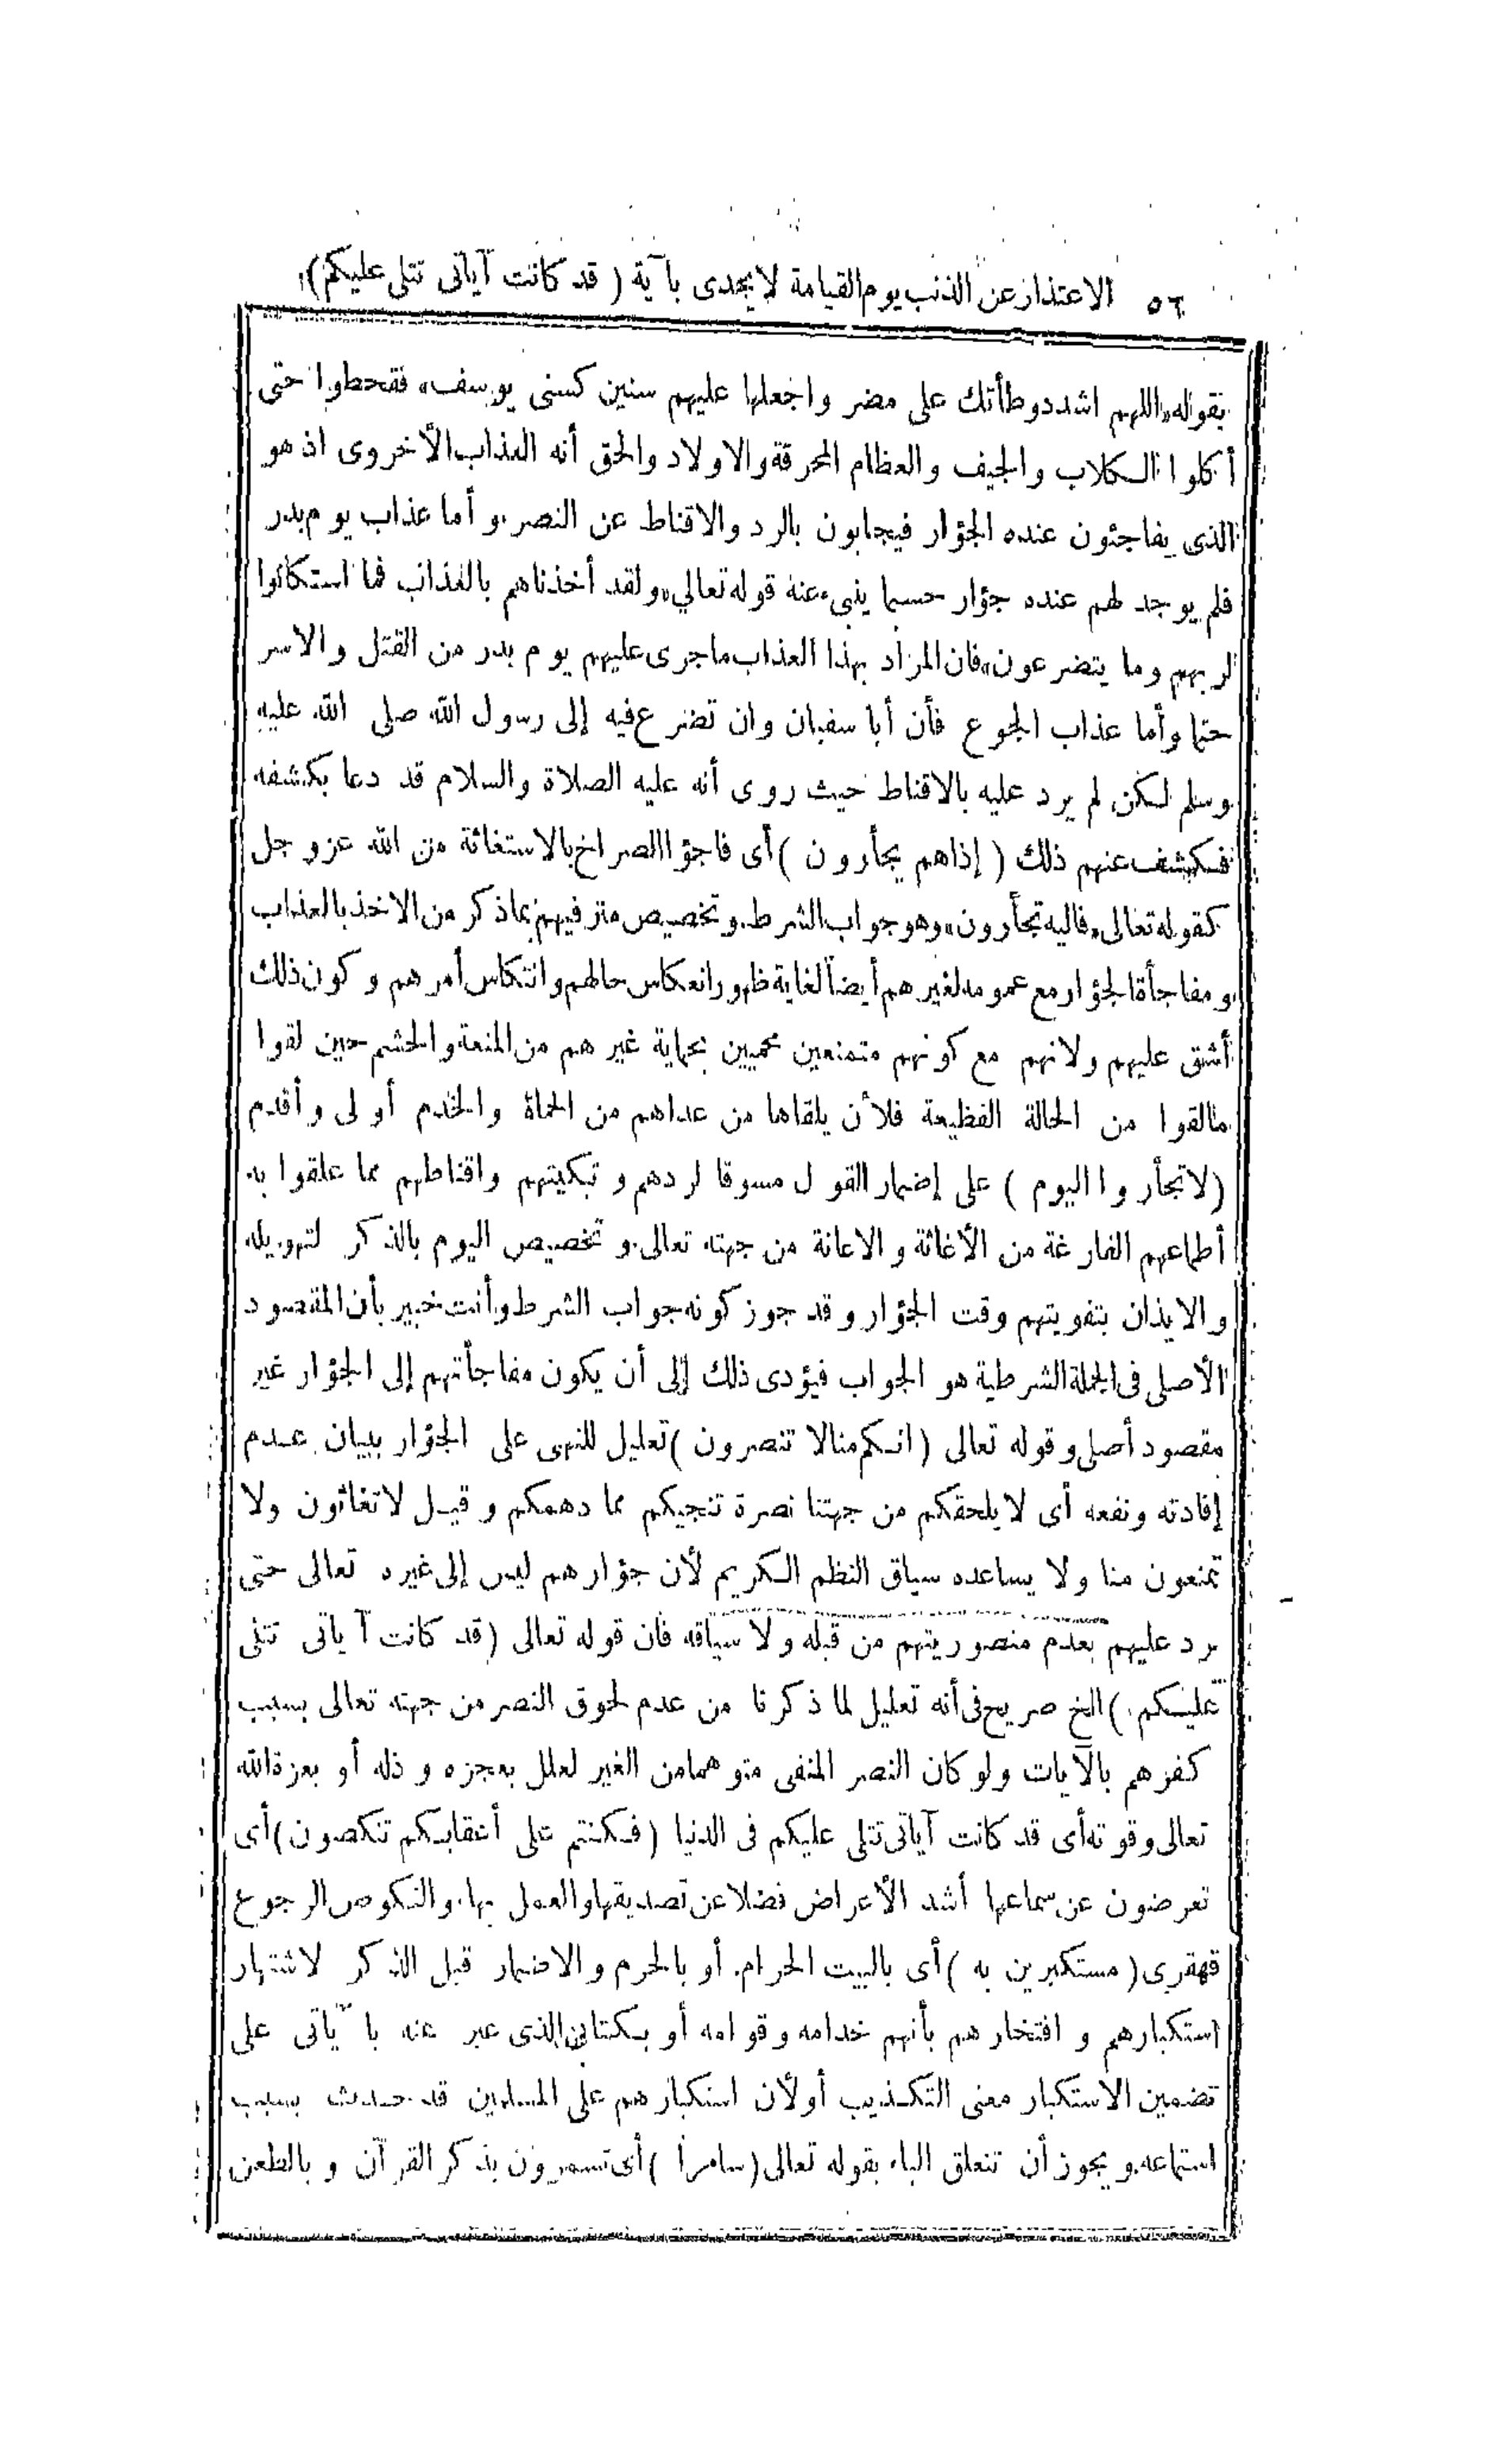 ٥٦ الاعتذار عن الذنب يوم القيامة لا يجدى بآية ( قد كانت آياتى تتلى عليكم )
بقوله «اللهم اشدد وطأتك على مضر واجعلها عليهم سنين كسنى يوسف» فقحطوا حتى
أكلوا الكلاب والجيف والعظام المحرقة والاولاد والحق أنه العذاب الأخروى اذ هو
الذى يفاجئون عنده الجؤار فيجابون بالرد والاقناط عن النصر، وأما عذاب يوم بدر
فلم يوجد لهم عنده جؤار حسبما ينبىء عنه قوله تعالي «ولقد أخذناهم بالعذاب فما استكانوا
لربهم وما يتضرعون» فان المراد بهذا العذاب ما جرى عليهم يوم بدر من القتل والاسر
حتما وأما عذاب الجوع فأن أبا سفيان وان تضرع فيه إلى رسول الله صلى الله عليه
وسلم لكن لم يرد عليه بالاقناط حيث روى أنه عليه الصلاة والسلام قد دعا بكشفه
فكشف عنهم ذلك ( إذا هم يجأرون ) أى فاجؤا الصراخ بالاستغاثة من الله عز وجل
كقوله تعالى «فاليه تجأرون» وهو جواب الشرط. وتخصيص مترفيهم بما ذكر من الاخذ بالعذاب
ومفاجأة الجؤار مع عمومه لغيرهم أيضاً لغاية ظهور انعكاس حالهم وانتكاس أمرهم وكون ذلك
أشق عليهم ولانهم مع كونهم متمنعين محميين بحماية غيرهم من المنعة والحشم حين لقوا
ما لقوا من الحالة الفظيعة فلأن يلقاها من عداهم من الحماة والخدم أولى وأقدم
(لا تجأروا اليوم ) على إضمار القول مسوقا لردهم وتبكيتهم واقناطهم مما علقوا به
أطماعهم الفارغة من الأغاثة والاعانة من جهته تعالى. وتخصيص اليوم بالذكر لتهويله
والايذان بتفويتهم وقت الجؤار وقد جوز كونه جواب الشرط وأنت خبير بأن المقصود
الأصلى فى الجملة الشرطية هو الجواب فيؤدى ذلك إلى أن يكون مفاجأتهم إلى الجؤار غير
مقصود أصلى وقوله تعالى ( انكم منا لا تنصرون ) تعليل للنهى على الجؤار ببيان عدم
إفادته ونفعه أى لا يلحقكم من جهتنا نصرة تنجيكم مما دهمكم وقيل لا تغاثون ولا
تمنعون منا ولا يساعده سياق النظم الكريم لأن جؤارهم ليس إلى غيره تعالى حتى
يرد عليهم بعدم منصوريتهم من قبله ولا سياقه فان قوله تعالى (قد كانت آياتى تتلى
عليكم ) الخ صريح فى أنه تعليل لما ذكرنا من عدم لحوق النصر من جهته تعالى بسبب
كفرهم بالآيات ولو كان النصر المنفى متوهما من الغير لعلل بعجزه وذله أو بعزة الله
تعالى وقوته أى قد كانت آياتى تتلى عليكم فى الدنيا (فكنتم على أعقابكم تنكصون) أى
تعرضون عن سماعها أشد الأعراض فضلا عن تصديقها والعمل بها، والنكوص الرجوع
قهقرى ( مستكبرين به ) أى بالبيت الحرام. أو بالحرم والاضمار قبل الذكر لاشتهار
استكبارهم وافتخارهم بأنهم خدامه وقوامه أو بكتابى الذى عبر عنه بآياتى على
تضمين الاستكبار معنى التكذيب أو لأن استكبارهم على المسلمين قد حدث بسبب
استماعه. ويجوز أن تتعلق الباء بقوله تعالى (سامرا ) أى تسمرون بذكر القرآن وبالطعن